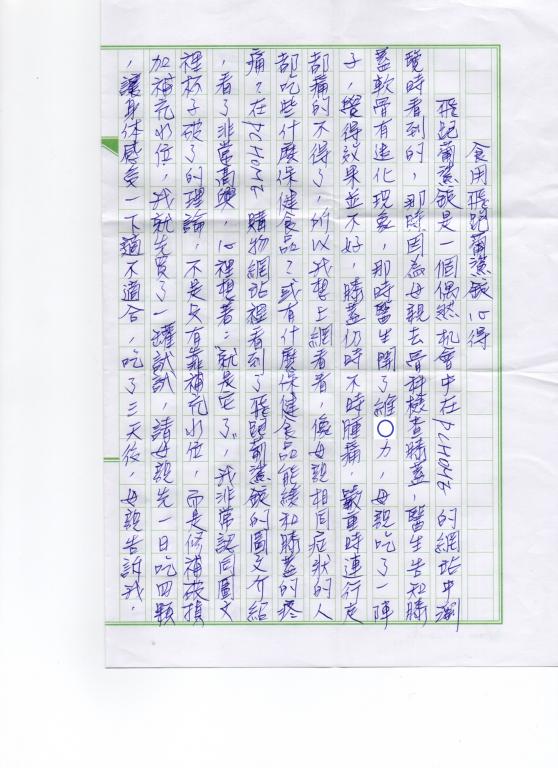 食用飛跑葡鯊錠心得
飛跑葡鯊錠是一個偶然机會中在24h0473的網站中瀏
覽時看到的，那時因為母親去骨科檢查膝蓋，醫生告知膝
蓋軟骨有退化現象，那時醫生開了維〇力，母親吃了一陣
子，覺得效果並不好，膝蓋仍時不時腫痛，嚴重時連行走
都痛的不得了，所以我想上網看看，像母親相同症狀的人
都吃些什麼保健食品？或有什麼保健食品能緩和膝蓋的疼
痛？在 購物網站裡看到了飛跑葡鯊錠的圖文介紹
，看了非常高興，心裡想著：〝就是它了〞，我非常認同圖文
裡杯子破了的理論，不是只有靠補充水位，而是修補破損
加補充水位，我就先買了一罐試試，請母親先一日吃四顆
，讓身体感受一下適不適合，吃了三天後，母親告訴我，